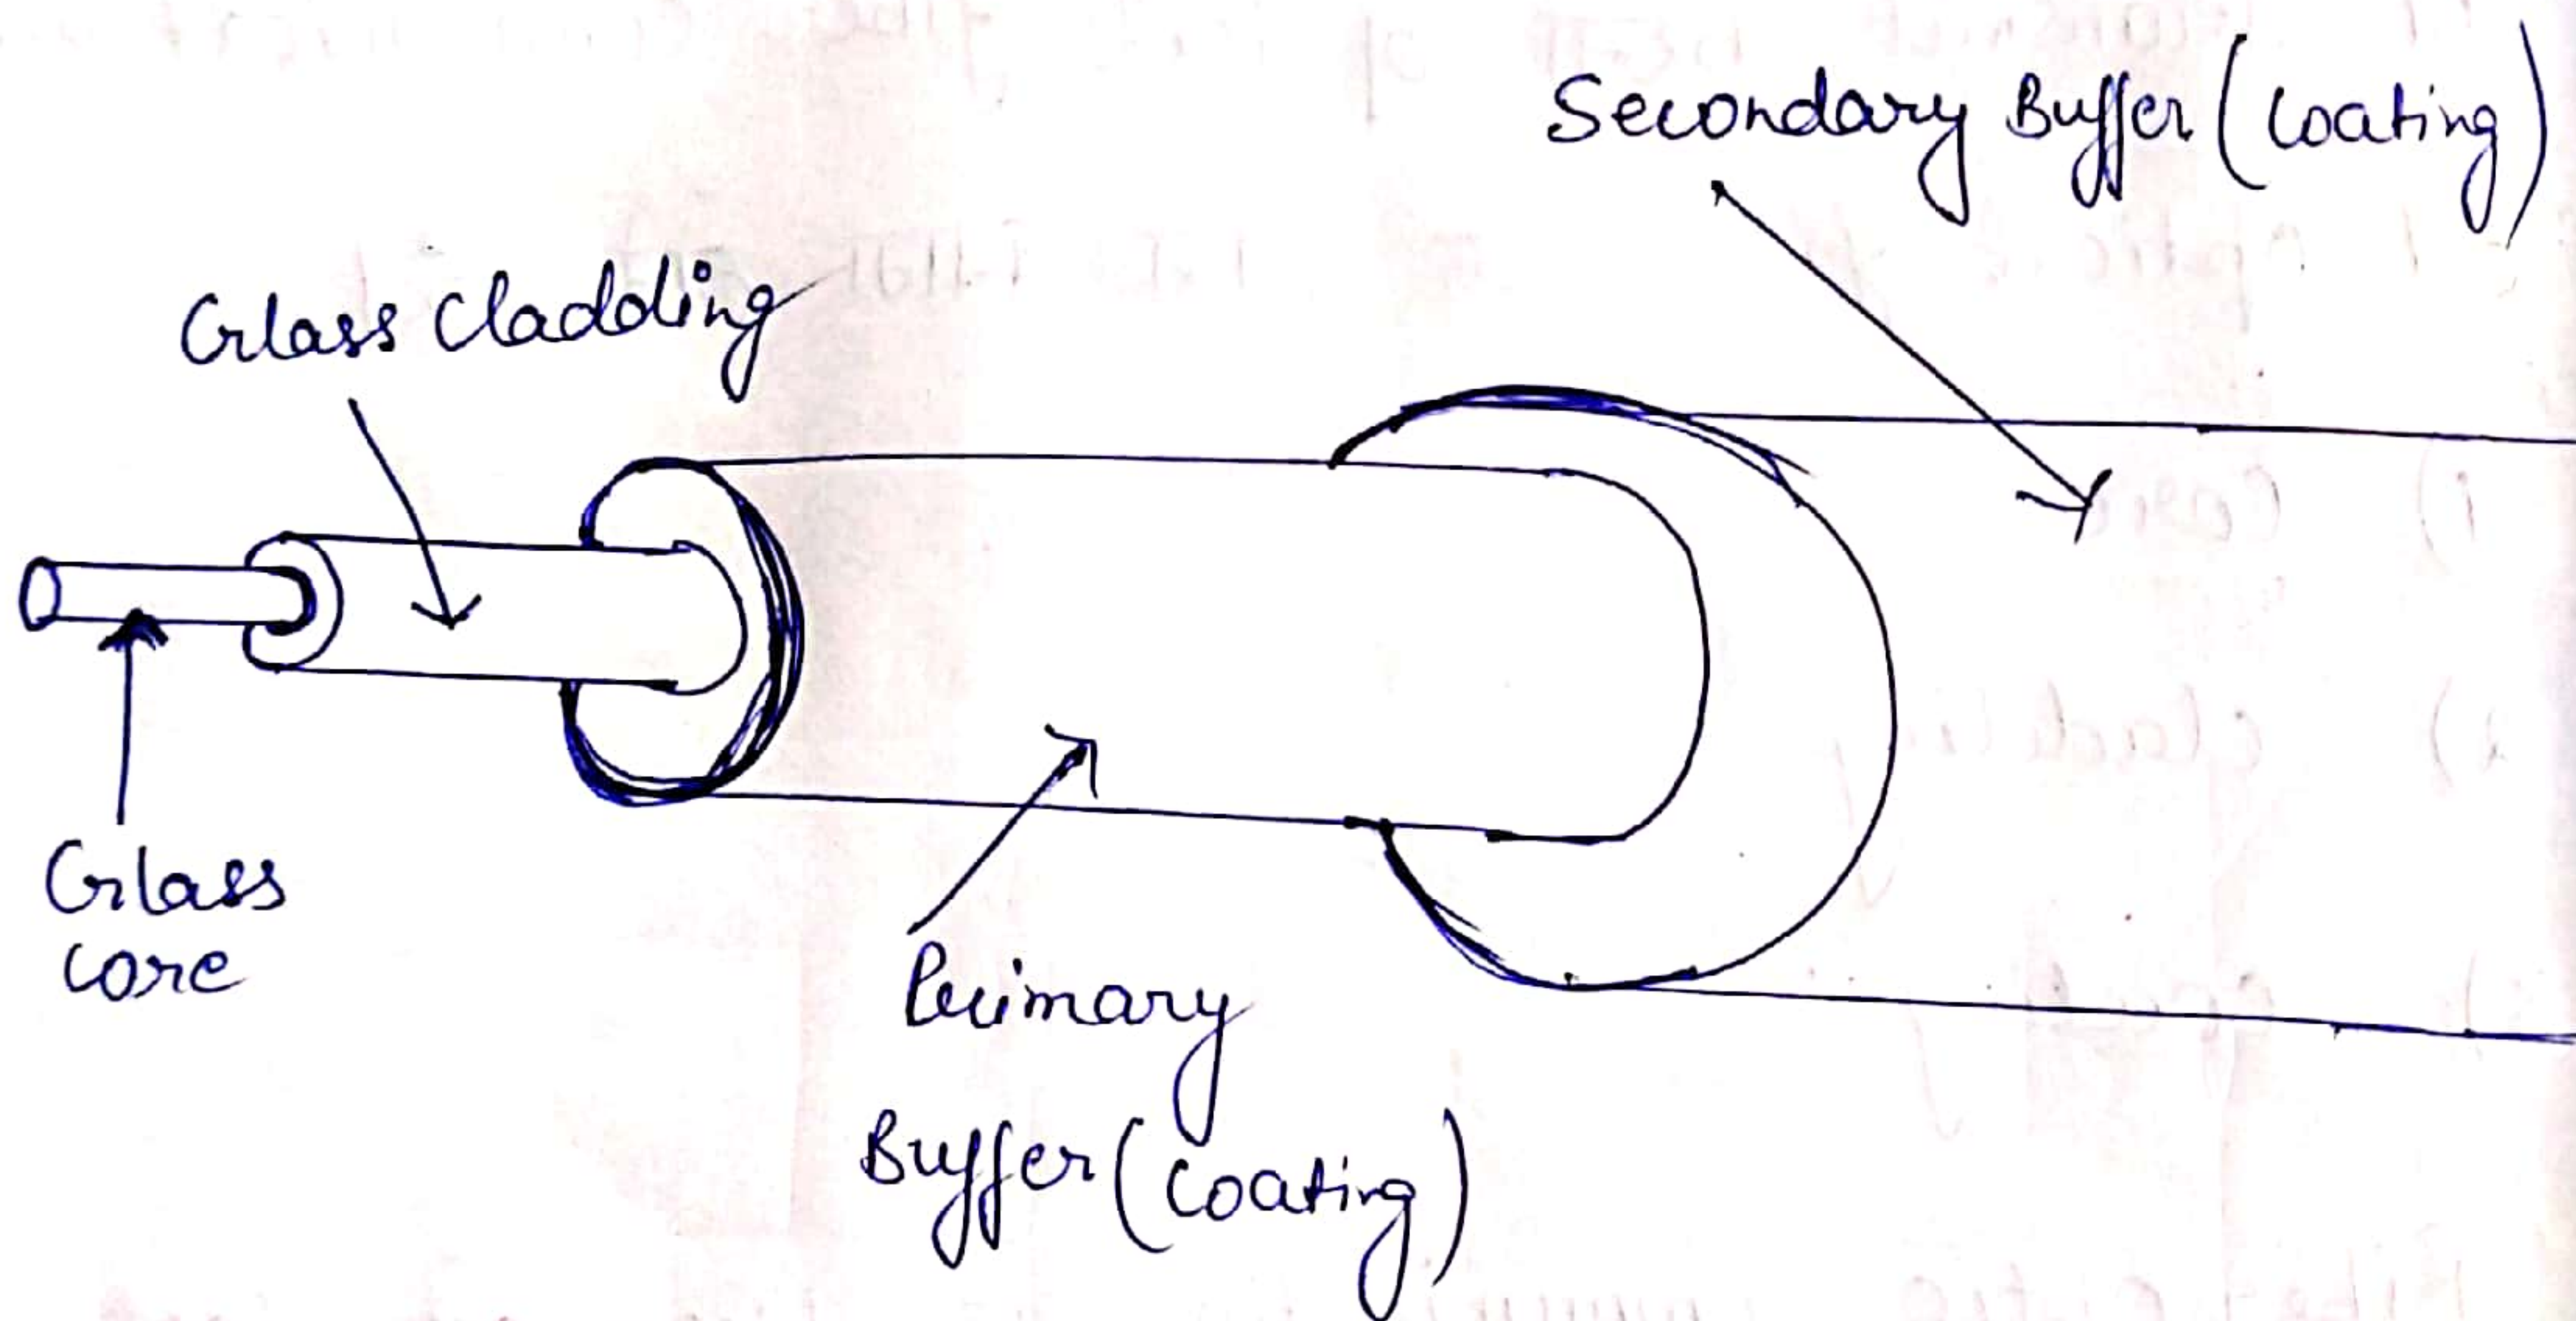 Secondary Buffer (Coating)
Glass Cladding
Glass
Core
Primary
Buffer (Coating)